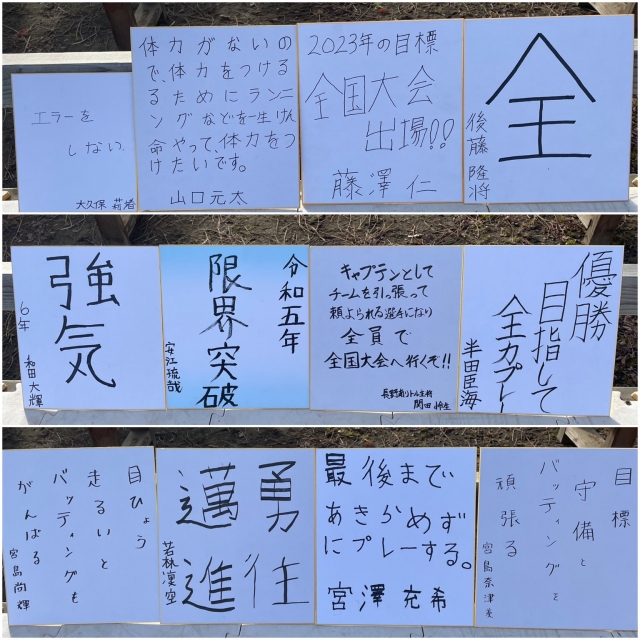 エラーを
しない
大久保 莉
体力がないの
で、体力をつける
るためにランニ
ングなどを一生けん
命やって、体力をつ
けたいです。
山口元太
2023年の目標
全国大会
出場!!
藤澤 仁
全
後藤 隆将
強気
6年 和田大輝
令和五年
限界突破
安江琉哉
キャプテンとして
チームを引っ張って
頼よられる選手になり
全員で
全国大会へ行くぞ!!
長野南リトル主将
関田
優勝
目指して
全力プレー
半田臣海
目ひょう
走るいと
バッティングも
がんばる
宮島尚輝
勇往
邁進
若林凜空
最後まで
あきらめず
にプレーする。
宮澤 充希
目標
守備と
バッティングを
頑張る
宮島奈津